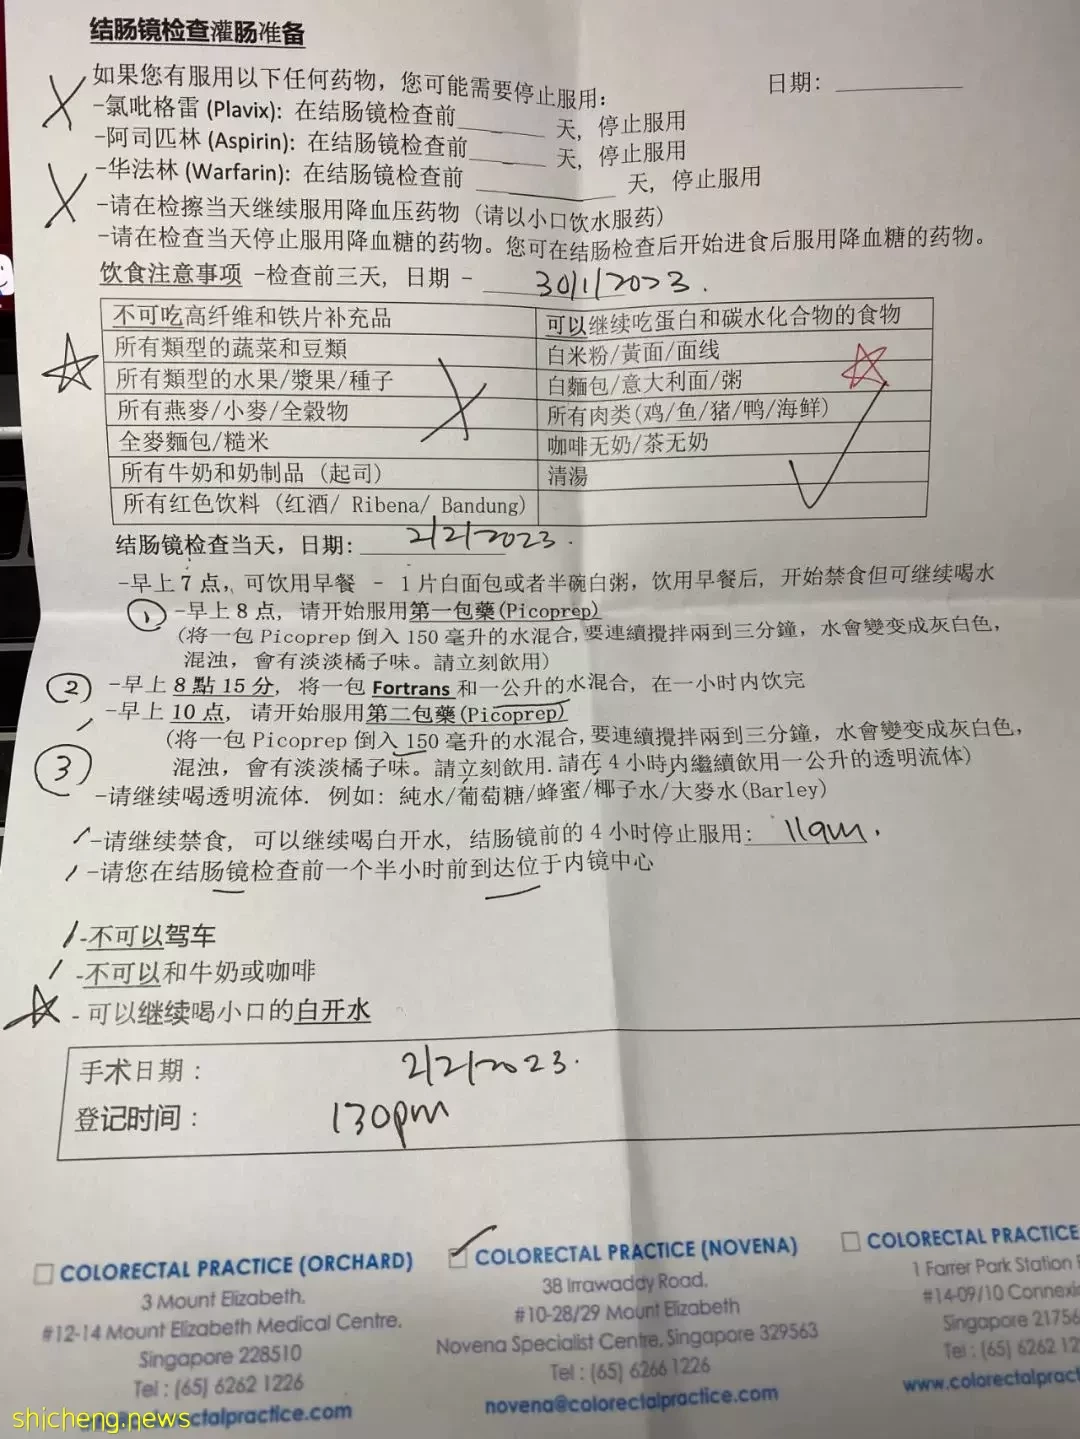 结肠镜检查灌肠准备
如果您有服用以下任何药物，您可能需要停止服用：
日期：
-氯吡格雷 (Plavix): 在结肠镜检查前 天，停止服用
-阿司匹林 (Aspirin): 在结肠镜检查前 天，停止服用
-华法林 (Warfarin): 在结肠镜检查前 天，停止服用
-请在检擦当天继续服用降血压药物（请以小口饮水服药）
-请在检查当天停止服用降血糖的药物。您可在结肠检查后开始进食后服用降血糖的药物。
饮食注意事项 -检查前三天，日期 - 30/1/2023.
不可吃高纤维和铁片补充品 可以继续吃蛋白和碳水化合物的食物
所有類型的蔬菜和豆類 白米粉/黃面/面线
所有類型的水果/漿果/種子 白麵包/意大利面/粥
所有燕麥/小麥/全榖物 所有肉类(鸡/鱼/猪/鸭/海鲜)
全麥麵包/糙米 咖啡无奶/茶无奶
所有牛奶和奶制品（起司） 清湯
所有红色饮料（红酒/ Ribena/ Bandung)
结肠镜检查当天，日期: 2/2/2023.
-早上 7 点，可饮用早餐 - 1 片白面包或者半碗白粥，饮用早餐后，开始禁食但可继续喝水
① -早上 8 点，请开始服用第一包藥(Picoprep)
(将一包 Picoprep 倒入 150 毫升的水混合,要連續攪拌兩到三分鐘，水會變变成灰白色，
混浊，會有淡淡橘子味。請立刻飲用)
② -早上 8 點 15 分，将一包 Fortrans 和一公升的水混合，在一小时内饮完
-早上 10 点，请开始服用第二包藥(Picoprep)
(将一包 Picoprep 倒入 150 毫升的水混合,要連續攪拌兩到三分鐘，水會變变成灰白色，
③ 混浊，會有淡淡橘子味。請立刻飲用.請在 4 小時内繼續飲用一公升的透明流体)
-请继续喝透明流体. 例如: 純水/葡萄糖/蜂蜜/椰子水/大麥水(Barley)
-请继续禁食，可以继续喝白开水，结肠镜前的 4 小时停止服用: 11am.
-请您在结肠镜检查前一个半小时前到达位于内镜中心
-不可以驾车
-不可以和牛奶或咖啡
- 可以继续喝小口的白开水
手术日期： 2/2/2023.
登记时间： 130pm
COLORECTAL PRACTICE (ORCHARD)
3 Mount Elizabeth,
#12-14 Mount Elizabeth Medical Centre,
Singapore 228510
Tel : (65) 6262 1226
ctalpractice.com
COLORECTAL PRACTICE (NOVENA)
38 Irrawaddy Road,
#10-28/29 Mount Elizabeth
Novena Specialist Centre, Singapore 329563
Tel : (65) 6266 1226
novena@colorectalpractice.com
COLORECTAL PRACTICE
1 Farrer Park Station
#14-09/10 Connexi
Singapore 21756
Tel : (65) 6262 12
www.colorectalpract
shicheng.news